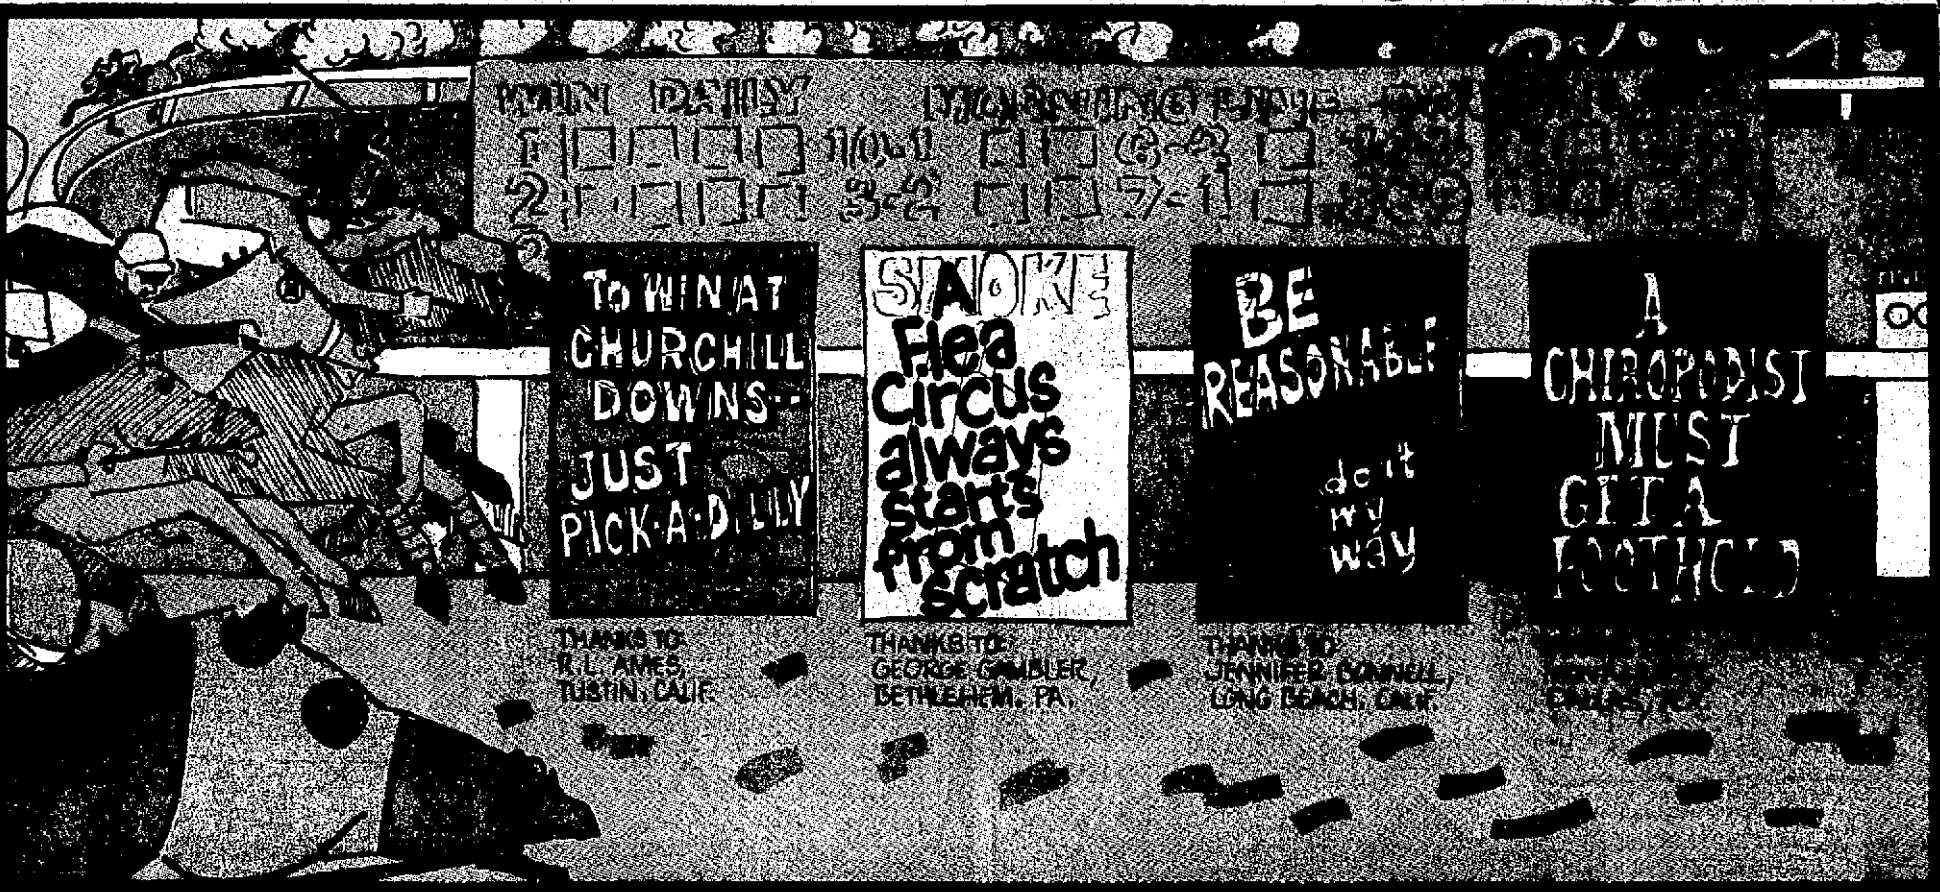 1
10-1
6-2
2
3-2
7-1
TO WIN AT
CHURCHILL
DOWNS--
JUST
PICK-A-DILLY
THANKS TO:
R.L. AMES,
TUSTIN, CALIF.
SMOKE
A
Flea
Circus
always
starts
from
scratch
THANKS TO:
GEORGE GAMBLER,
BETHLEHEM, PA.
BE
REASONABLE
do it
my
way
THANKS TO:
JENNIFER BONNELL,
LONG BEACH, CALIF.
A
CHIROPODIST
MUST
GET A
FOOTHOLD